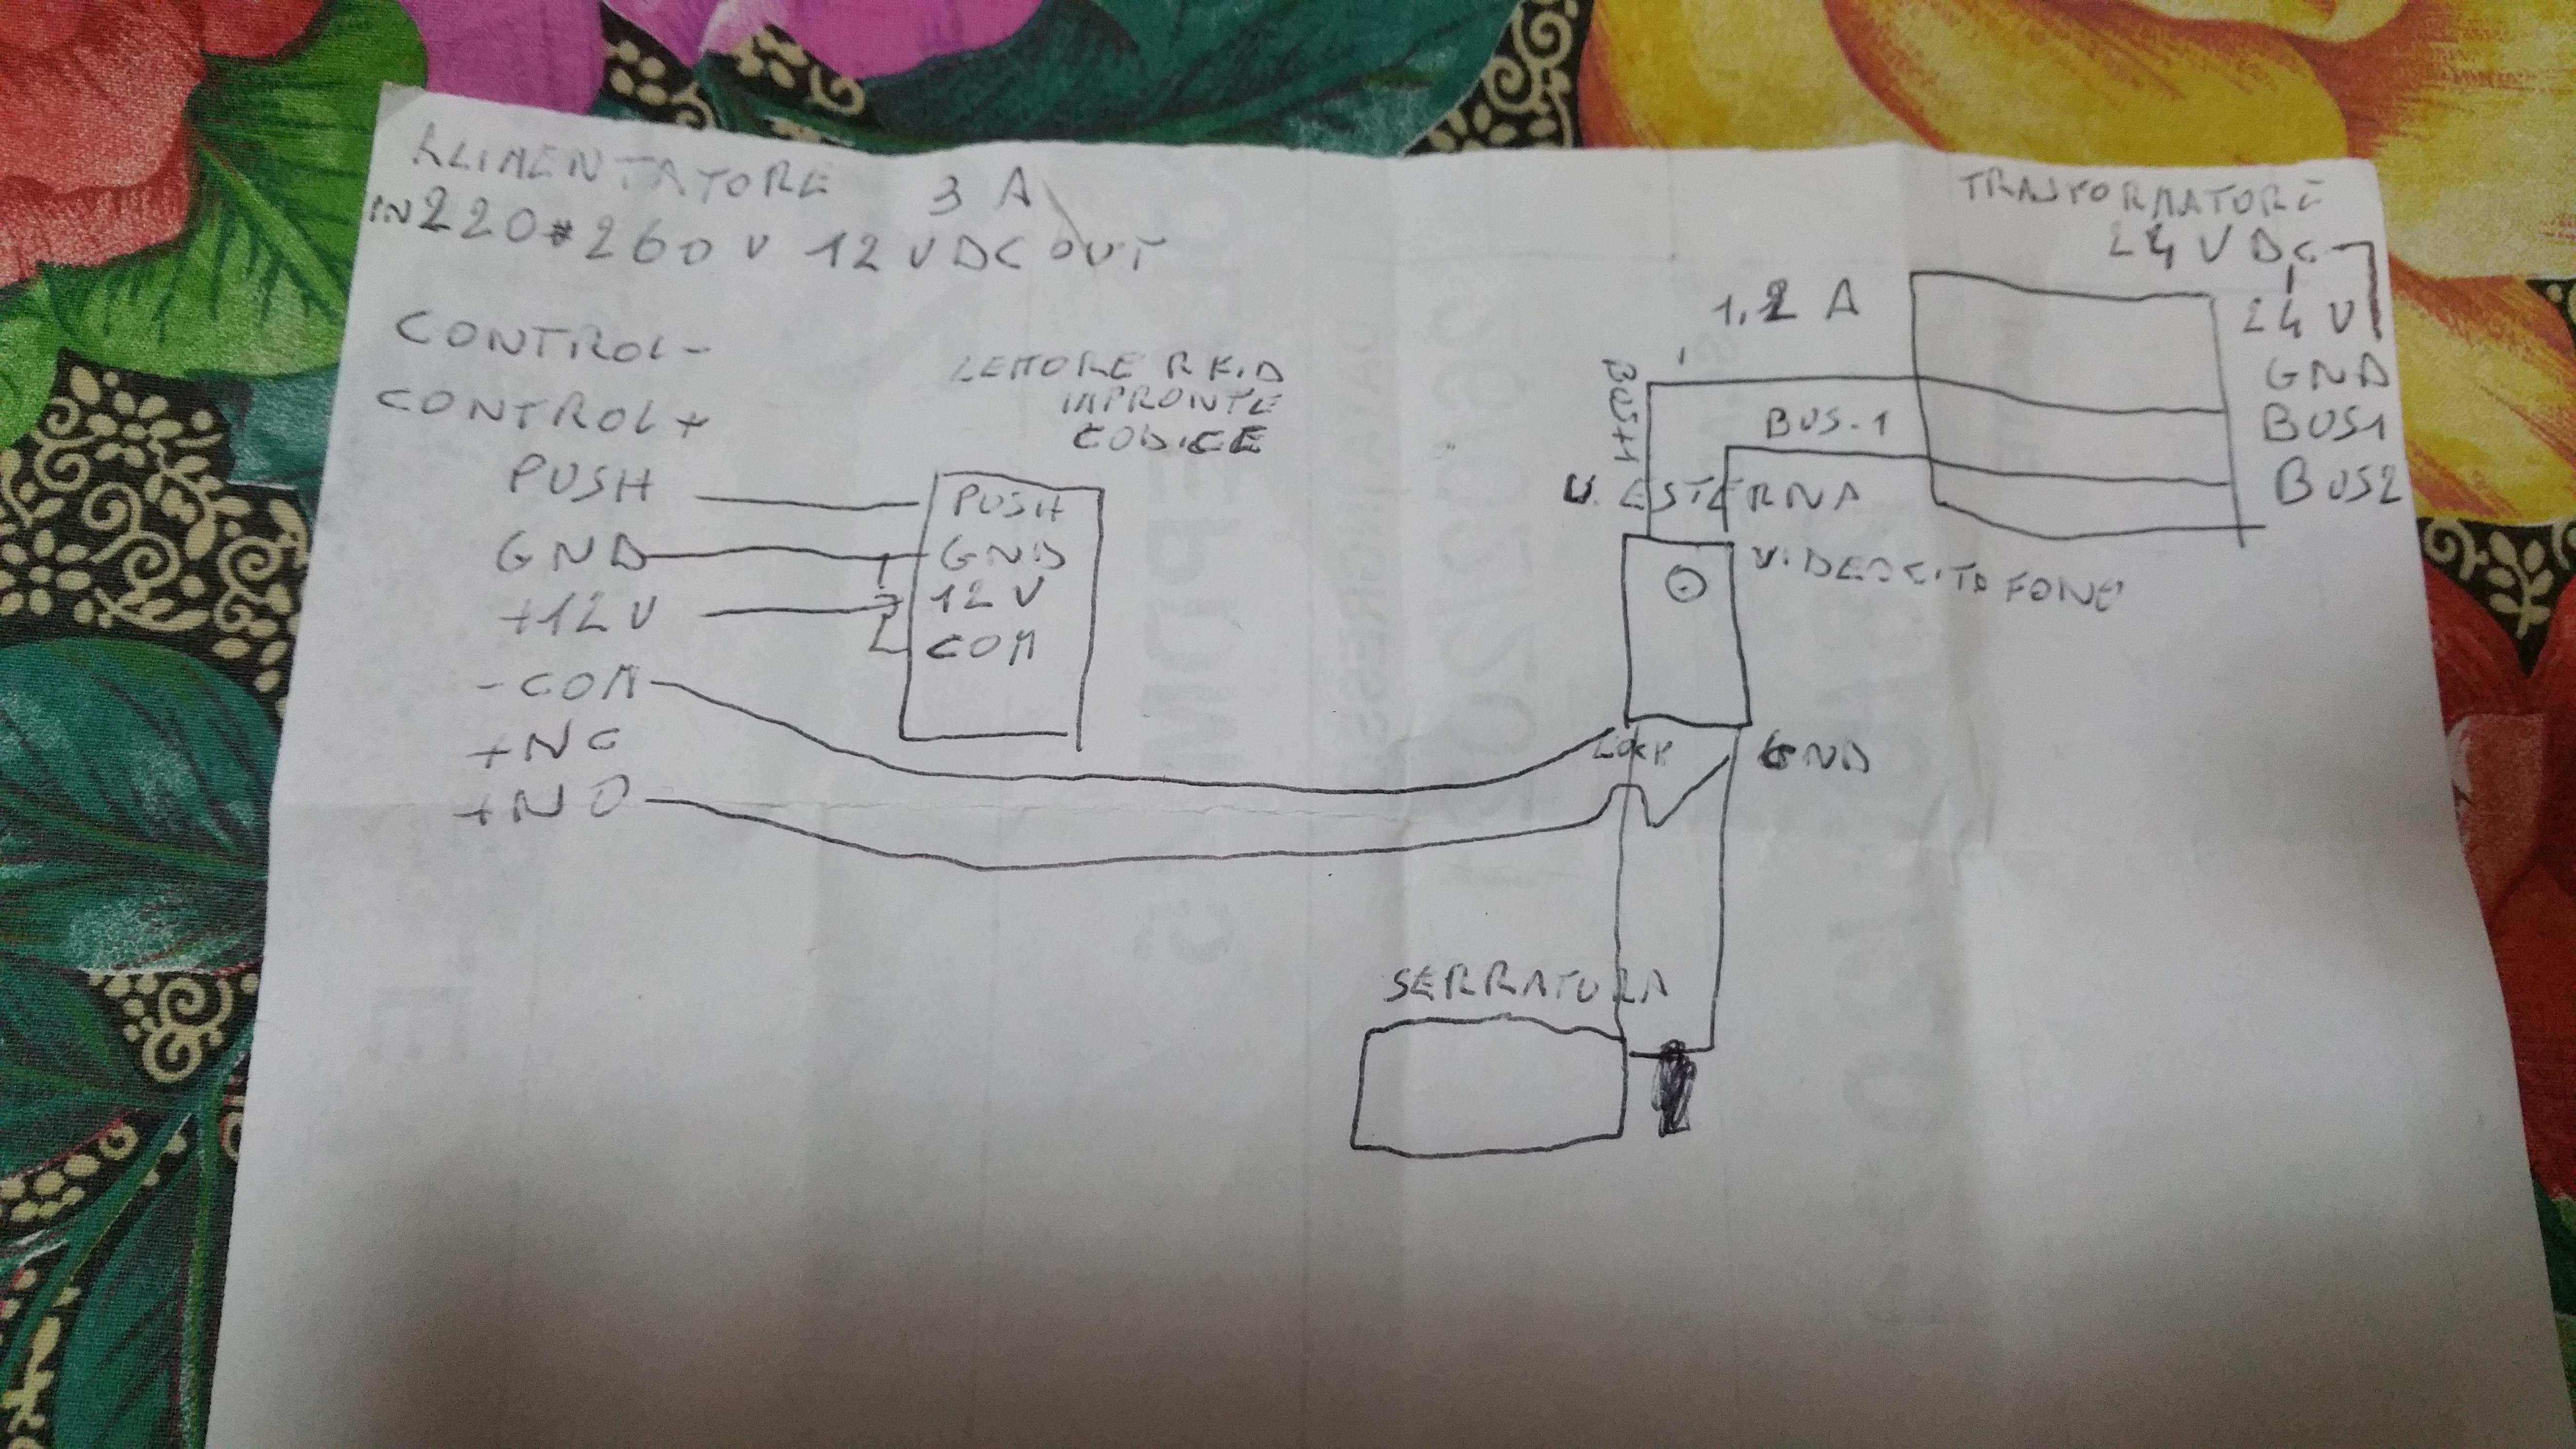 ALIMENTATORE 3 A
IN 220 260 V 12 VDC OUT
CONTROL-
CONTROL+
PUSH
GND
+12V
-COM
+NC
+NO
LETTORE RFID
IMPRONTE
CODICE
PUSH
GND
12V
COM
TRASFORMATORE
24 VDC
1.2 A
24 V
GND
BUS1
BUS2
BUS+1
BUS-1
U. ESTERNA
VIDEOCITOFONO
LOCK
GND
SERRATURA